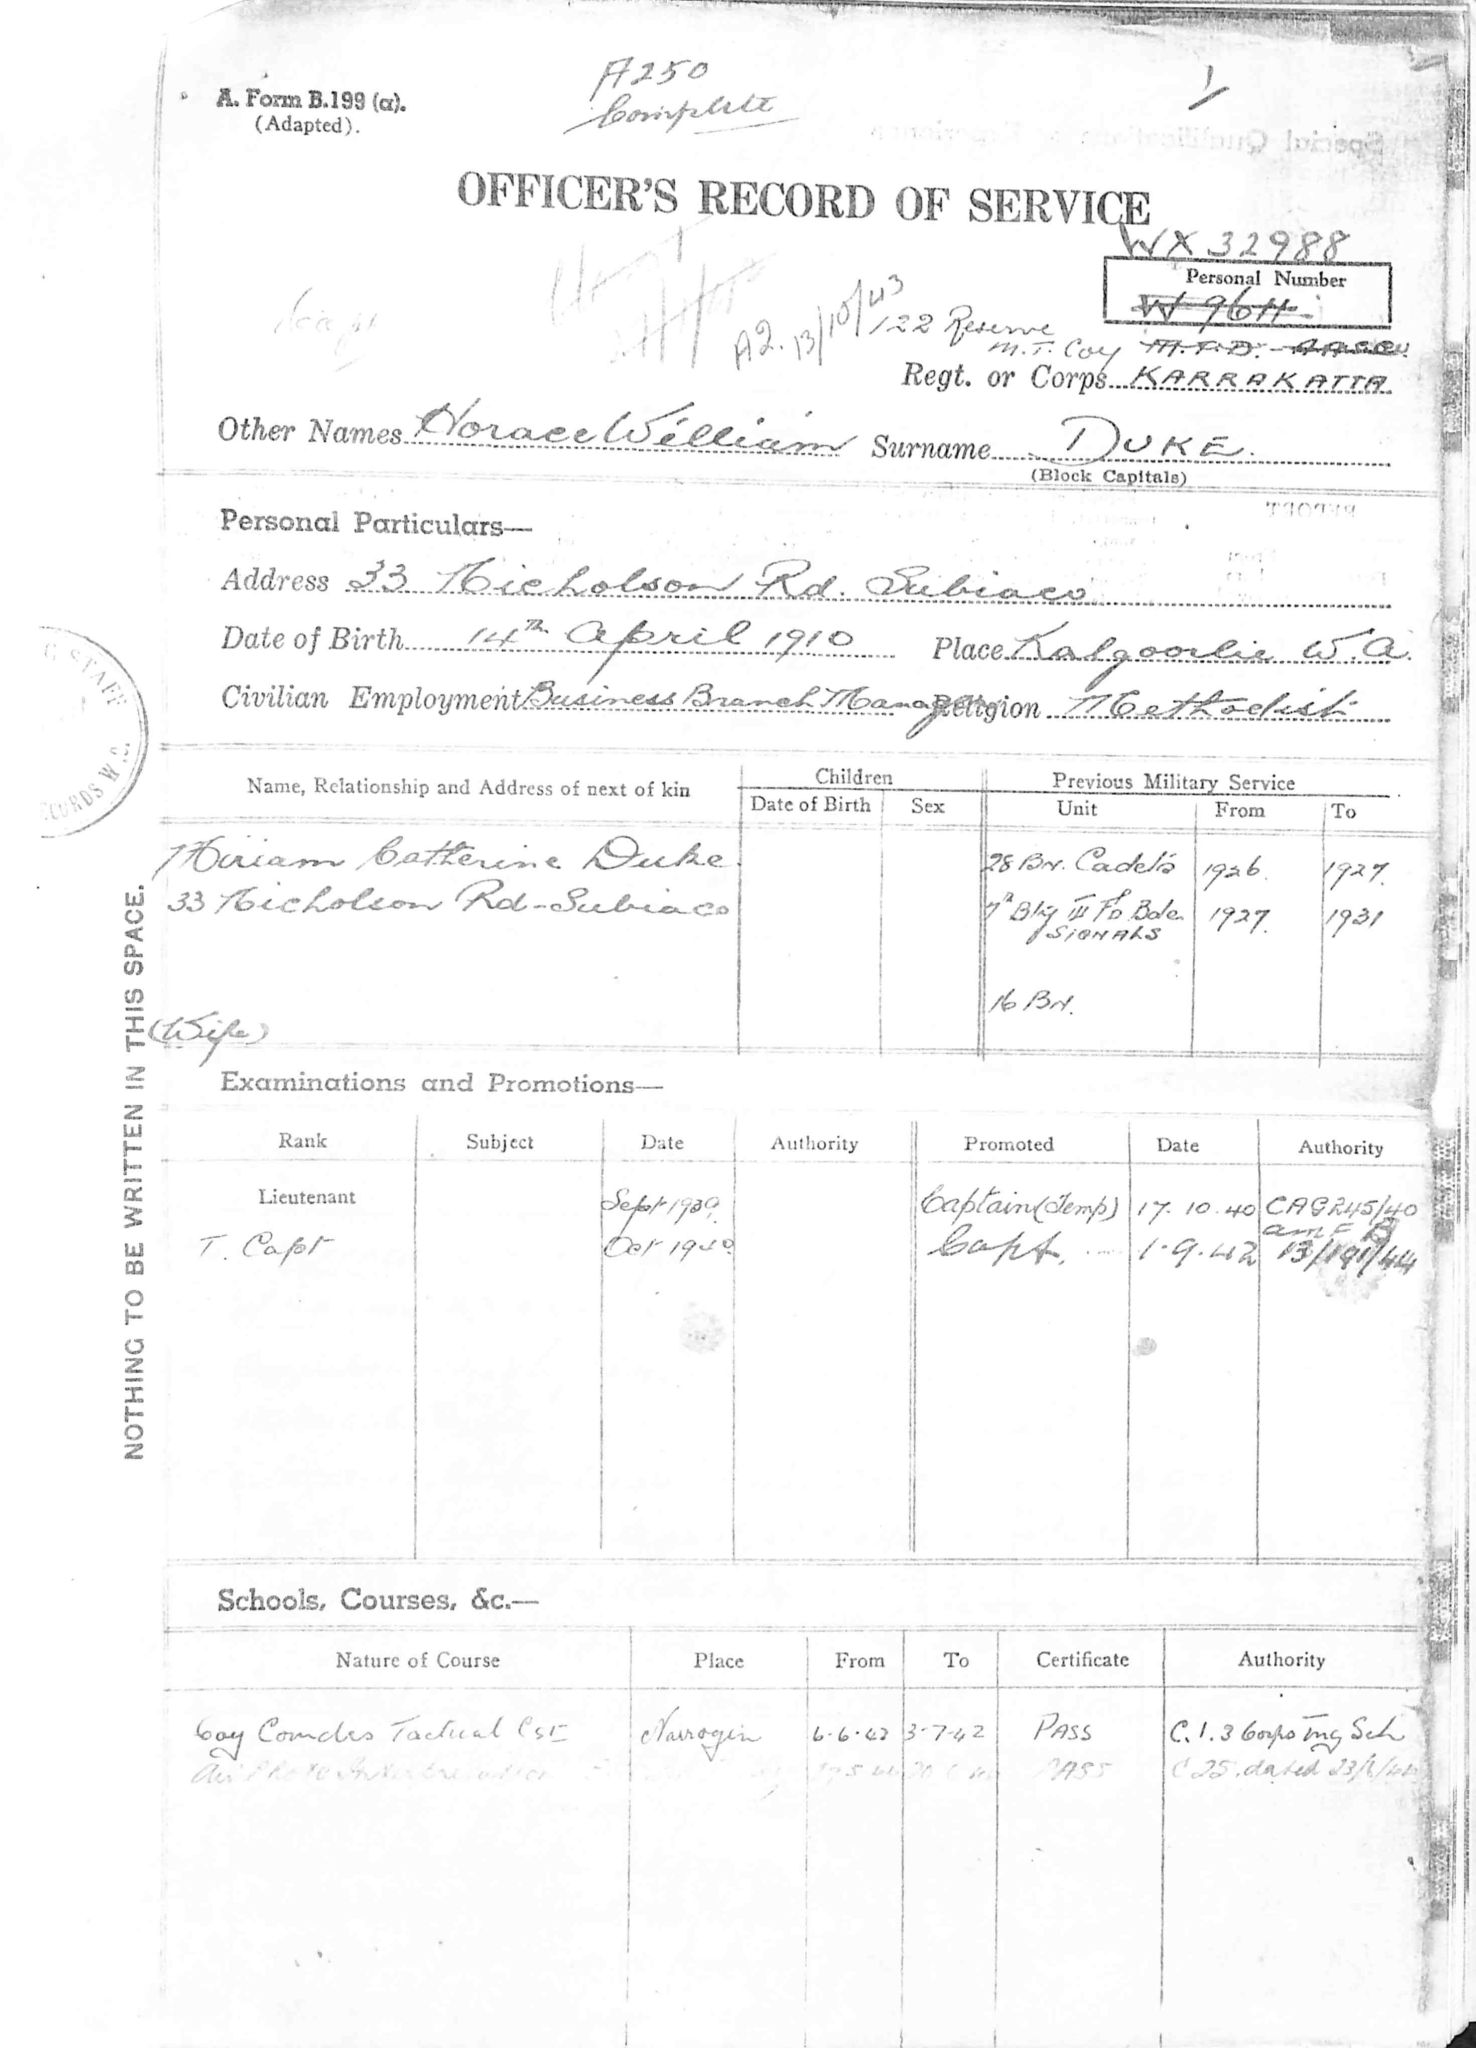 A. Form B.199 (a).
(Adapted).
A250
Complete
1
OFFICER'S RECORD OF SERVICE
WX 32988
Personal Number
W 9611
A2. 13/10/43
122 Reserve
M.T. Coy M.T.D. AASC
Regt. or Corps KARRAKATTA
Other Names Horace William Surname DUKE.
(Block Capitals)
Personal Particulars—
Address 33 Nicholson Rd. Subiaco
Date of Birth 14th April 1910 Place Kalgoorlie W.A.
Civilian Employment Business Branch Manager Religion Methodist
Name, Relationship and Address of next of kin Children Previous Military Service
Date of Birth Sex Unit From To
Miriam Catherine Duke. 28 BN. Cadets 1926. 1927.
33 Nicholson Rd-Subiaco 7th Bty III Fd Bde 1927. 1931
SIGNALS
16 BN.
(Wife)
STAFF
RECORDS W.
NOTHING TO BE WRITTEN IN THIS SPACE.
Examinations and Promotions—
Rank Subject Date Authority Promoted Date Authority
Lieutenant Sept 1939. Captain (Temp) 17.10.40 CAG245/40
T. Capt Oct 1940 Capt. 1.9.42 13/191/44
Schools, Courses, &c.—
Nature of Course Place From To Certificate Authority
Coy Comdrs Tactical Cse Narrogin 6.6.42 3.7.42 PASS C.1.3 Corps Tng Sch
Air Photo Interpretation PASS C25. dated